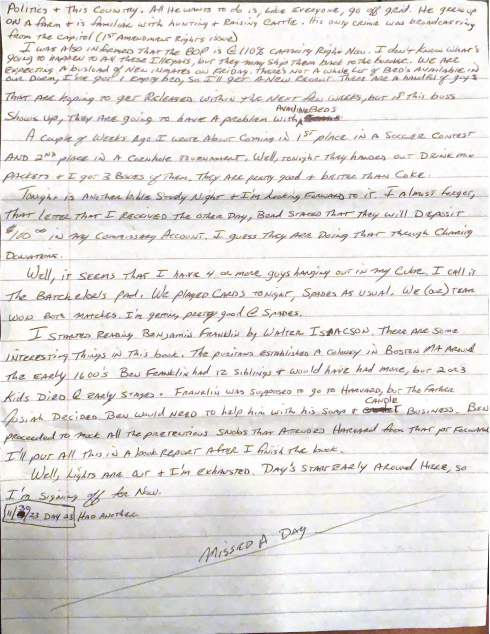 Politics + This Country. All He wants to do is, like Everyone, go off grid. He grew up
on a farm + is familiar with hunting + Raising Cattle. His only crime was broadcasting
from the Capitol (1st Amendment Rights issue)
I was Also informed that the BOP is @ 110% capacity Right Now. I don't know what's
going to happen to All these Illegals, but they may ship them back to the border. We are
Expecting A busload of New inmates on Friday. There's Not A whole lot of Bed's Available in
our Dorm, I've got 1 empty bed, so I'll get A New Recruit. There are A handful of guys
That are hoping to get Released within the Next few weeks, but if this buss
Shows up, they are going to have A problem with Available Beds
A couple of Weeks Ago I wrote About Coming in 1st place in A Soccer Contest
AND 2nd place in A Cornhole Tournament. Well, tonight they handed out Drink mix
packets + I got 3 Boxes of them. They are pretty good + better than Coke.
Tonight is Another bible Study Night + I'm looking Forward to it. I Almost forgot,
That letter that I received the other Day, Brad Stated that they will Deposit
$100.00 in my Commissary Account. I guess They Are Doing that Through Charity
Donations.
Well, it seems that I have 4 or more guys hanging out in my Cube. I call it
The Batchelors Pad. We played Cards tonight, Spades as usual. We (our) Team
won Both matches. I'm getting pretty good @ Spades.
I Started Reading Benjamin Franklin by Walter Isaacson. There are Some
Interesting Things in this book. The puritans established A Colony in Boston MA Around
the Early 1600's. Ben Franklin had 12 Siblings + would have had more, but 2 or 3
Kids Died @ Early Stages. Franklin was supposed to go to Harvard, but The Father
Josiah Decided Ben would need to help him with his Soap + Candle Business. Ben
proceeded to mock All the pretentious Snobs that Attended Harvard from that pt Forward
I'll put All this in A book Report After I finish the book.
Well, Lights are out + I'm exhausted. Day's Start Early Around Here, so
I'm Signing off for Now.
11/30/23 DAY 23 Had Another
Missed A Day